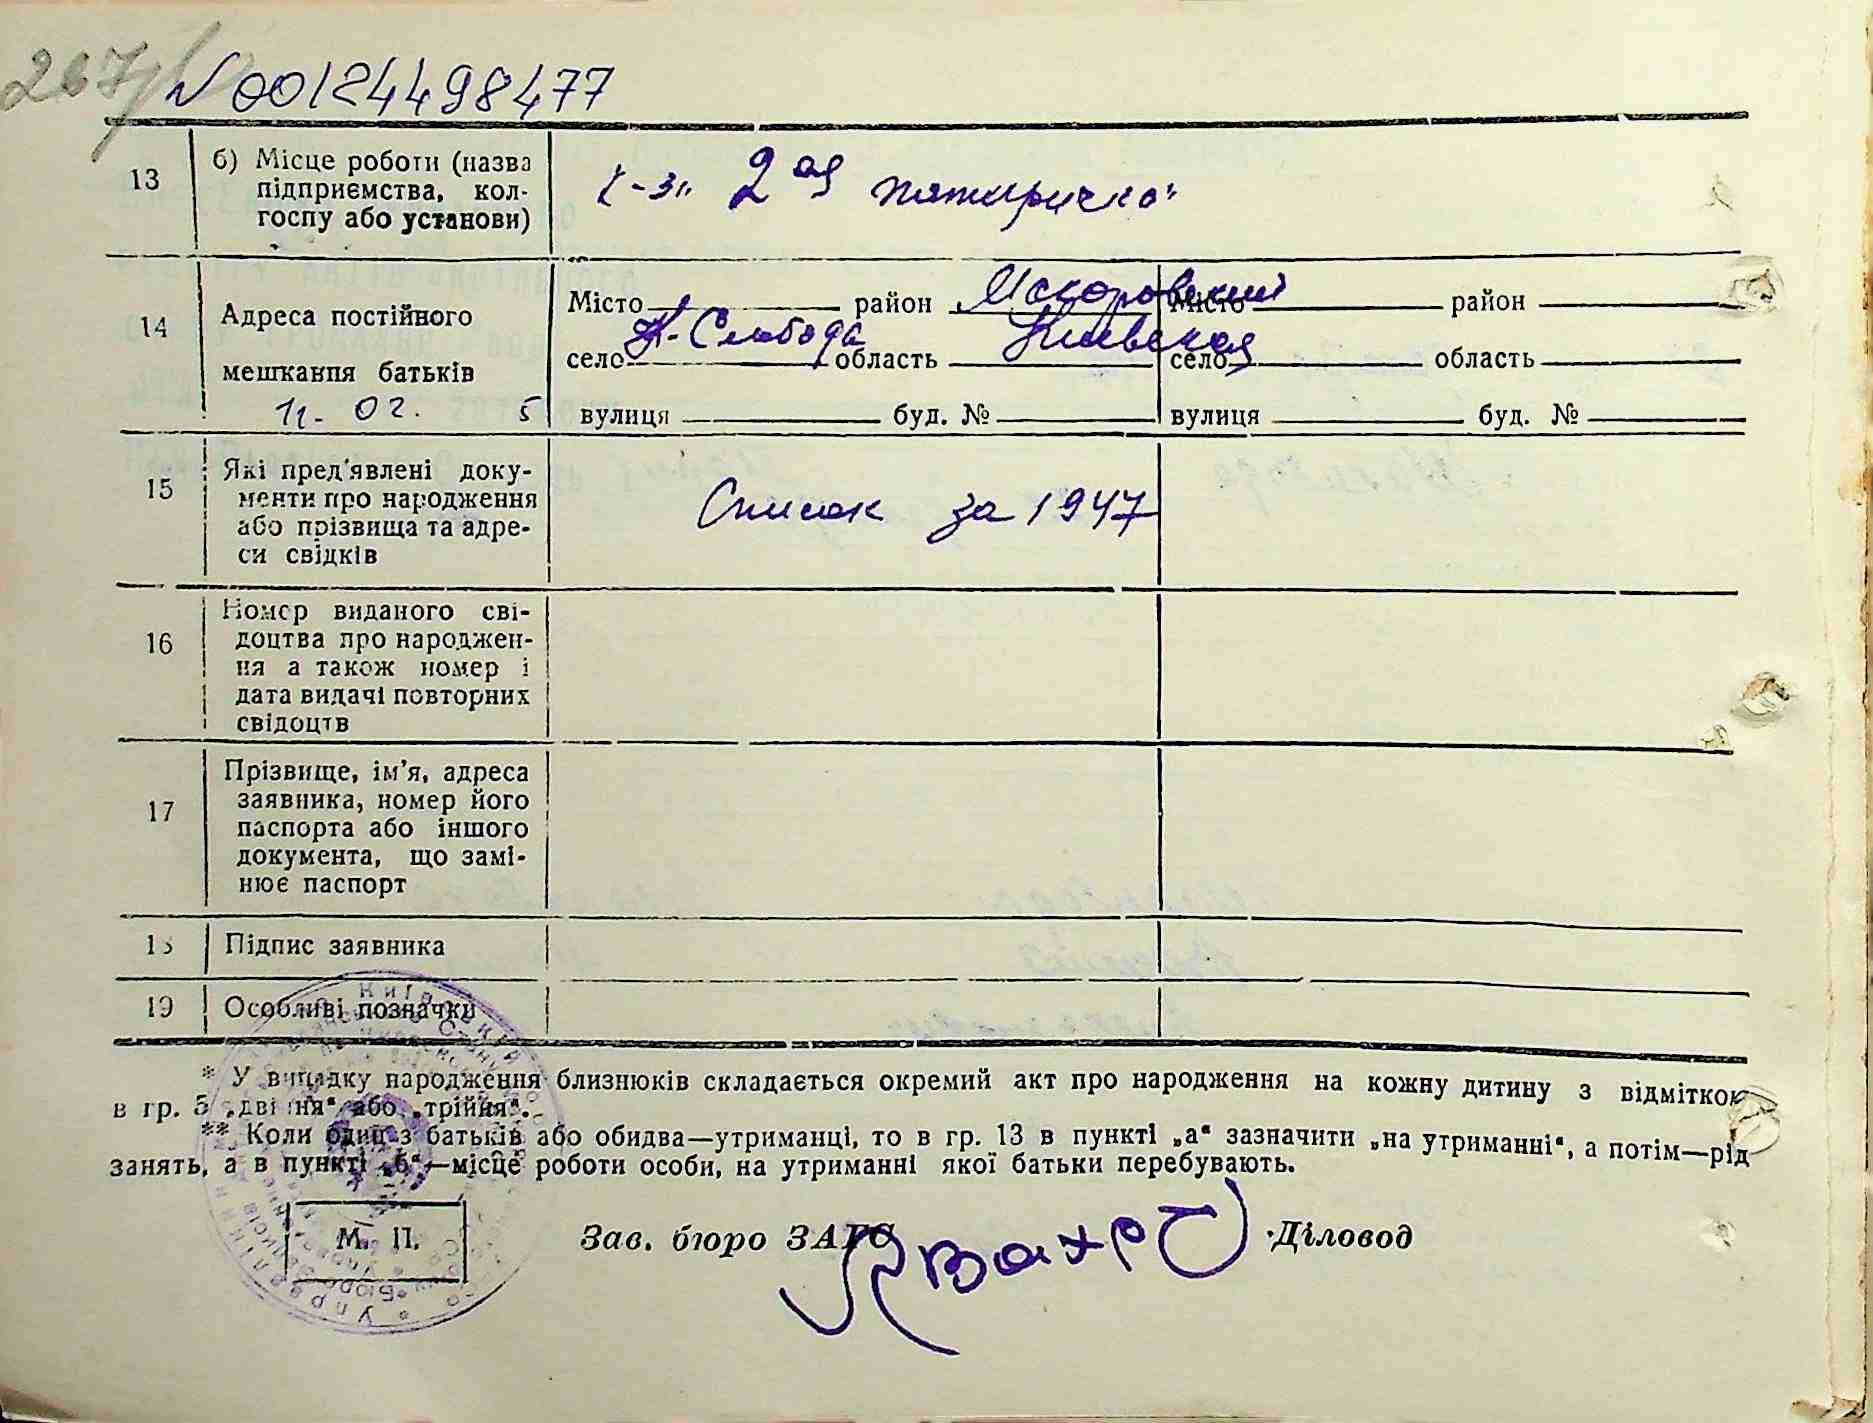 267
N 00124498477
13
б) Місце роботи (назва
підприємства, кол-
госпу або установи)
к-зп 2ая пятиричка
14
Адреса постійного
мешкання батьків
11. 02. 5
Місто район Макаровский Місто район
село Н-Слобода область Киевская село область
вулиця буд. № вулиця буд. №
15
Які пред'явлені доку-
менти про народження
або прізвища та адре-
си свідків
Список за 1947
16
Номер виданого сві-
доцтва про народжен-
ня а також номер і
дата видачі повторних
свідоцтв
17
Прізвище, ім'я, адреса
заявника, номер його
паспорта або іншого
документа, що замі-
нює паспорт
18
Підпис заявника
19
Особливі позначки
* У випадку народження близнюків складається окремий акт про народження на кожну дитину з відміткою
в гр. 5 „двійня“ або „трійня“.
** Коли один з батьків або обидва—утриманці, то в гр. 13 в пункті „а“ зазначити „на утриманні“, а потім—рід
занять, а в пункті „б“—місце роботи особи, на утриманні якої батьки перебувають.
М. П.
Зав. бюро ЗАГС
Діловод